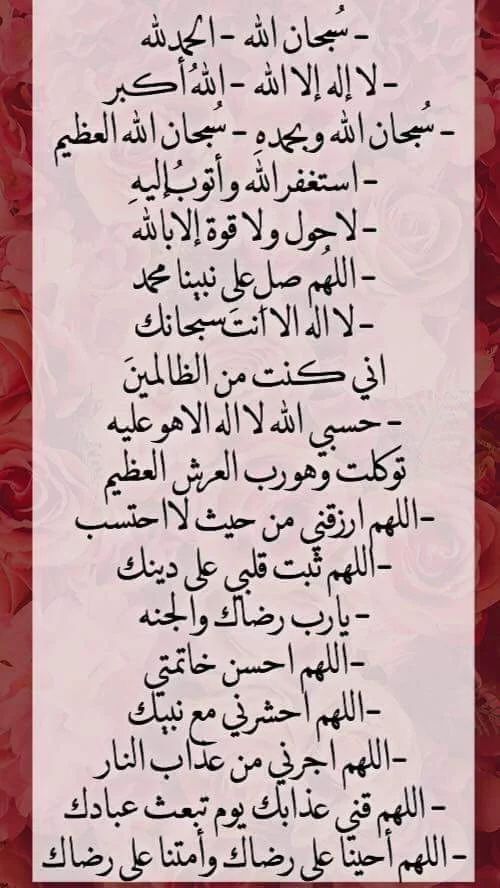 - سُبحان الله - الحمدلله
- لا إله إلا الله - اللهُ أكبر
- سُبحان الله وبحمدهِ - سُبحان الله العظيم
- استغفر الله وأتوبُ إليهِ
- لا حول ولا قوة إلا بالله
- اللهُم صلِ على نبينا محمد
- لا اله الا انتَ سبحانك
اني كنت من الظالمينَ
- حسبي الله لا اله الا هو عليه
توَكلت وهو رب العرش العظيم
- اللهم ارزقني من حيث لا احتسب
- اللهم ثبت قلبي على دينك
- يارب رضاك والجنه
- اللهم احسن خاتمتي
- اللهم احشرني مع نبيك
- اللهم اجرني من عذاب النار
- اللهم قني عذابك يوم تبعث عبادك
- اللهم أحينا على رضاك وأمتنا على رضاك